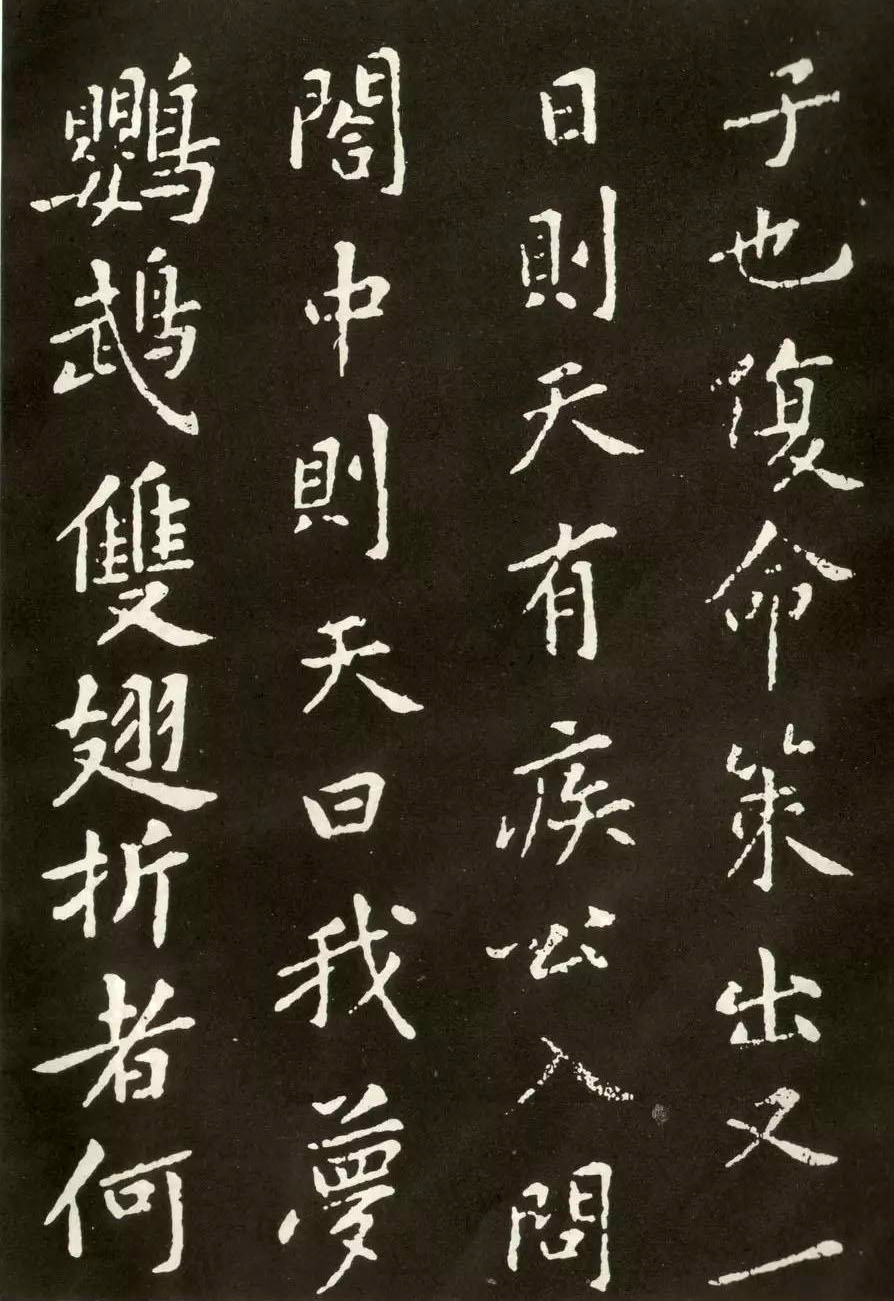 子也復命策出又一
日則天有疾公入問
閤中則天曰我夢
鸚鵡雙翅折者何